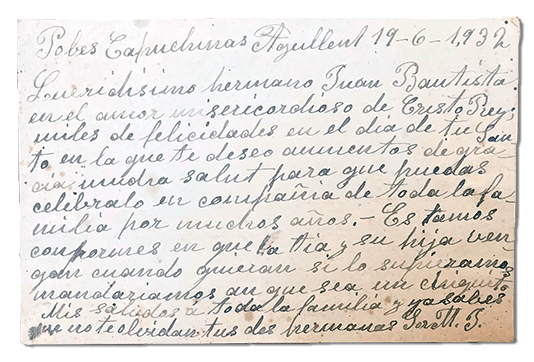 Pobes Capuchinas Agullent 19-6-1,932
Queridisimo hermano Juan Bautista
en el amor misericordioso de Cristo Rey;
miles de felicidades en el dia de tu San-
to en la que te deseo aumentos de gra-
cia mucha salut para que puedas
celebralo en compañia de toda la fa-
milia por muchos años.- Es tamos
conformes en que la tia y su hija ven
gan cuando quieran si lo supieramos
mandariamos an que sea un chiquito
Mis saludos a toda la familia y ya sabes
que no te olvidan tus dos hermanas Sor M. T.